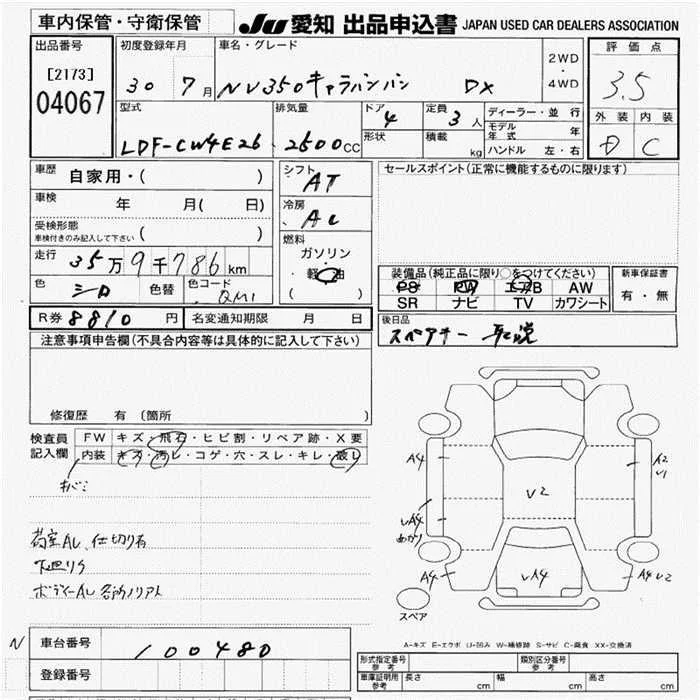 車内保管・守衛保管
JU 愛知 出品申込書 JAPAN USED CAR DEALERS ASSOCIATION
出品番号 初度登録年月 車名・グレード 2WD・4WD 評価点
[2173] 04067 30 7月 NV350キャラバンバン DX 3.5
型式 排気量 ドア 4 定員 3人 ディーラー・並行 外装 内装
LDF-CW4E26 2500CC 形状 積載 kg モデル年式 年 C
ハンドル 左・右
車歴 自家用・( ) シフト AT セールスポイント(正常に機能するものに限ります)
車検 年 月( 日) 冷房 AC
受検形態 車検付きのみ記入して下さい ( ) 燃料 ガソリン・軽油 ( )
走行 35万9千786km
装備品(純正品に限り○をつけてください) 新車保証書
PS PW エアB AW 有・無
SR ナビ TV カワシート
色 シロ 色替 色コード QM1
R券 8810円 名変通知期限 月 日
後日品 スペアキー 取説
注意事項申告欄(不具合内容等は具体的に記入して下さい)
修復歴 有(箇所
検査員記入欄 FW キズ・飛石・ヒビ割・リペア跡・X要
内装 キズ・汚レ・コゲ・穴・スレ・キレ・破レ
キバミ
荷室AL、仕切り有
下廻りサ
ボディーAL 各所ノリアト
A4 A2
V1
V2
A4
A4 A4 V2
スペア
A-キズ E-エクボ U-凹み W-補修跡 S-サビ C-腐食 XX-交換済
N 車台番号 100480
登録番号
形式指定番号 参考 類別区分番号 参考
車庫証明用 参考 長さ cm 幅 cm 高さ cm